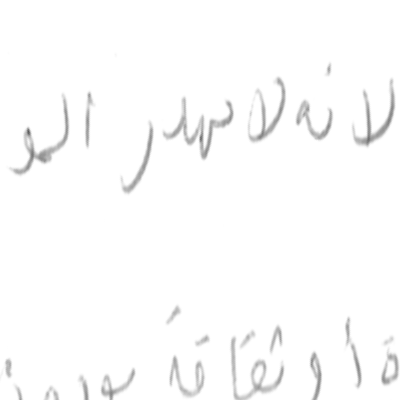 لانه لا يهدر الو
ة أو ثقافة